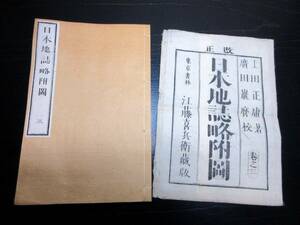 日本地誌略附圖
三
改正
上田正庸著
廣田巖麿校
日本地誌略附圖
卷之三
東京書林
江藤喜兵衛藏版